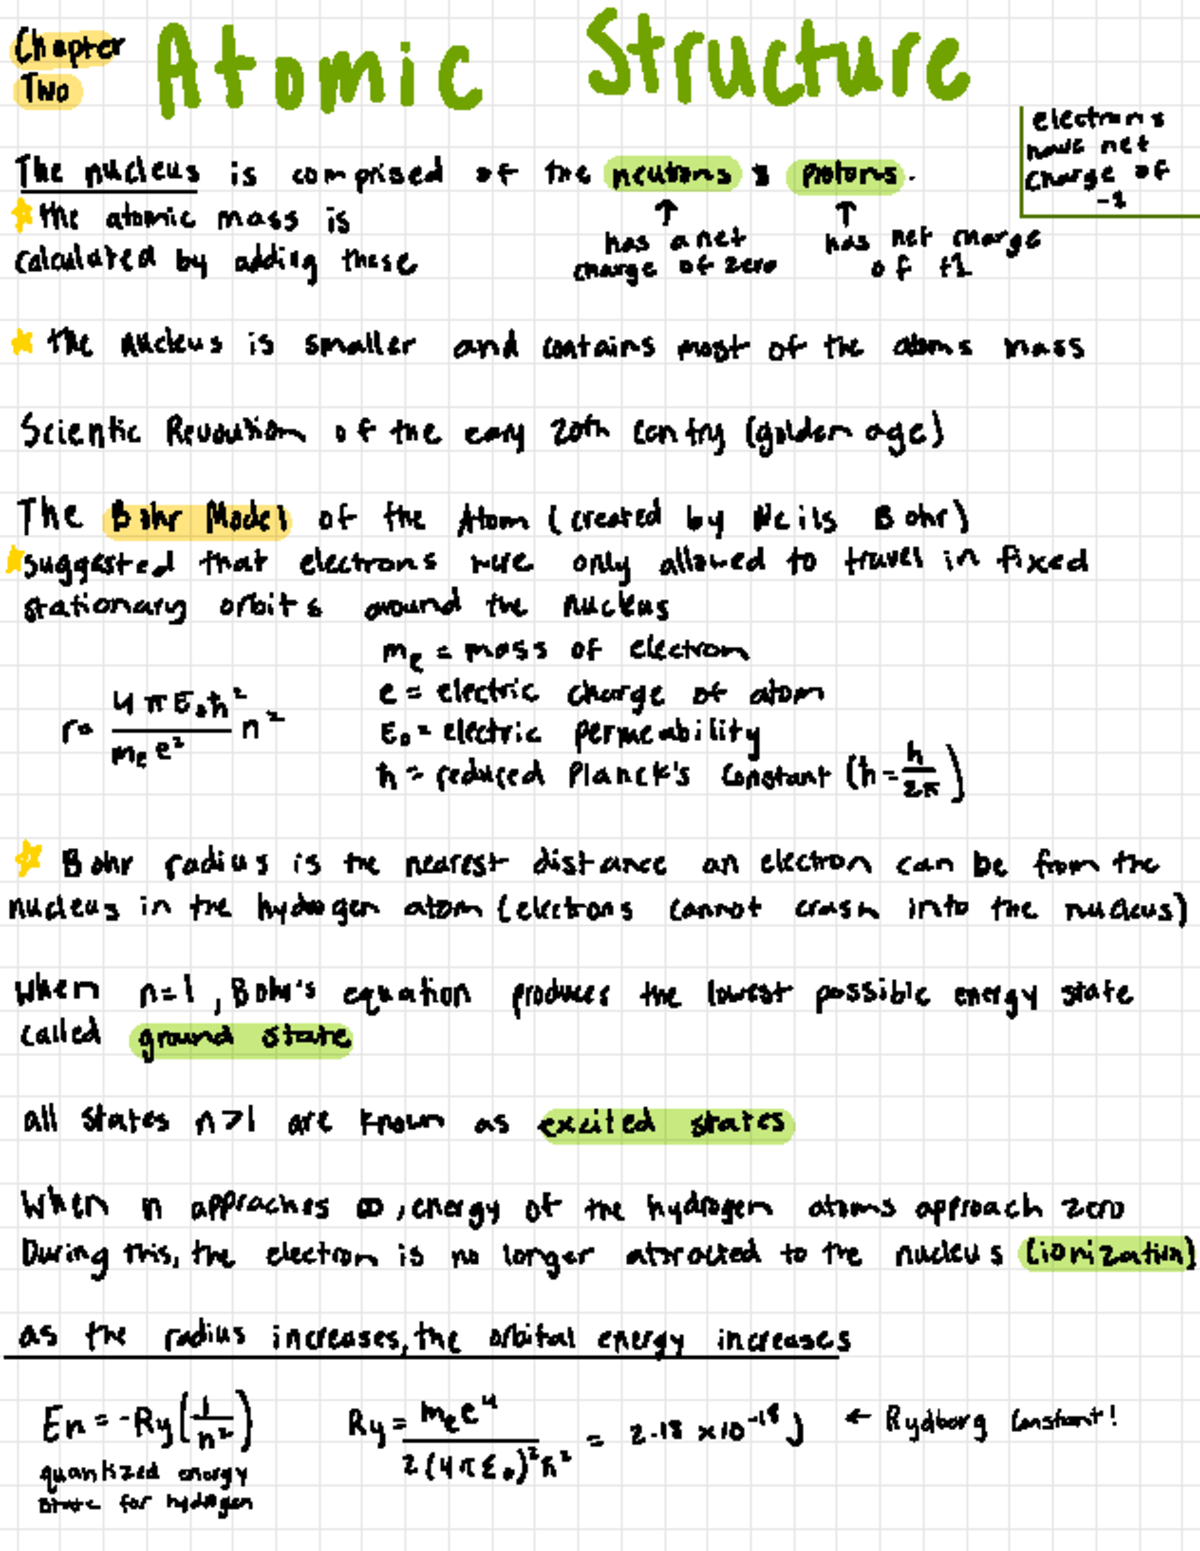 Chapter
Two
Atomic Structure
electrons
have net
charge of
-1
The nucleus is comprised of the neutrons & protons.
↑ ↑
the atomic mass is
has a net has net charge
calculated by adding these
charge of zero of +1
the nucleus is smaller and contains most of the atoms mass
Scientic Revoution of the eary 20th contry (golden age)
The Bohr Model of the Atom (created by Neils Bohr)
suggested that electrons were only allowed to travel in fixed
stationary orbits around the nucleus
me = mass of electron
e = electric charge of atom
r= 4πε₀ħ²/mee² n²
ε₀ = electric permeability
ħ = reduced Planck's Constant (ħ = h/2π)
Bohr radius is the nearest distance an electron can be from the
nucleus in the hydrogen atom (electrons cannot crash into the nucleus)
When n=1, Bohr's equation produces the lowest possible energy state
called ground state
all states n>1 are known as excited states
When n appraches ∞, energy of the hydrogen atoms approach zero
During this, the electron is no longer attracted to the nucleus (ionization)
as the radius increases, the orbital energy increases
En = -Ry(1/n²) Ry = mee⁴/2(4πε₀)²ħ² = 2.18 x10⁻¹⁸ J ← Rydborg Constant!
quantized energy
state for hydrogen